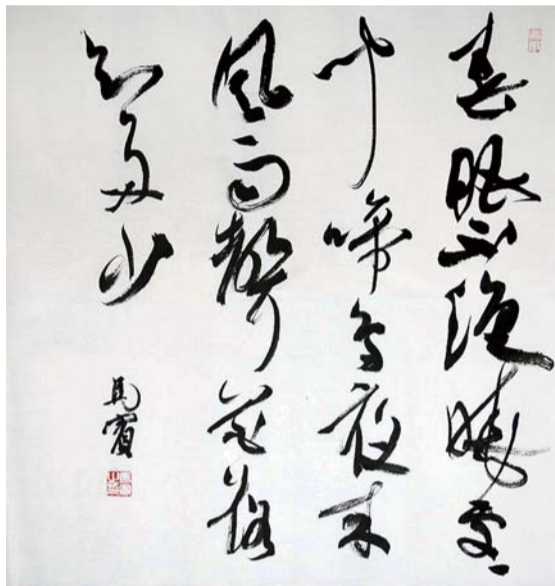 春眠不觉晓处々
闻啼鸟夜来
风雨声花落
知多少
马宾